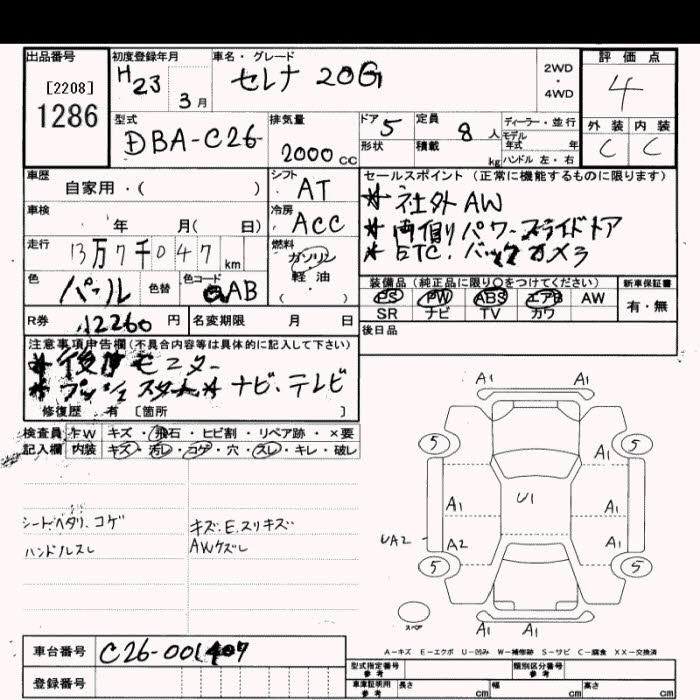 出品番号 初度登録年月 車名・グレード 評価点
[2208] H23 3月 セレナ 20G 2WD・4WD 4
1286
型式 排気量 ドア 定員 ディーラー・並行 外装 内装
DBA-C26 2000cc 5 8人 モデル年式 年 C C
形状 積載 kg ハンドル 左・右
車歴 シフト セールスポイント(正常に機能するものに限ります)
自家用・( ) AT *社外AW
車検 冷房 *両側パワースライドドア
年 月( 日) ACC *ETC.バックカメラ
走行 燃料
13万7千047km ガソリン
軽・油
・( )
色 色替 色コード 装備品(純正品に限り○をつけてください) 新車保証書
パール AB PS PW ABS エアB AW 有・無
SR ナビ TV カワ
R券 12260円 名変期限 月 日 後日品
注意事項申告欄(不具合内容等は具体的に記入して下さい)
モニター
ナビ.テレビ
修復歴 有 [箇所 ]
検査員 FW キズ・飛石・ヒビ割・リペア跡・×要
記入欄 内装 キズ・汚レ・コゲ・穴・スレ・キレ・破レ
シートヘタリ.コゲ キズ.E.スリキズ
ハンドルスレ AWケズレ
A1 A1
5 5
A1
A1 U1 A1
UA2 A2 A1
5 5
スペア
A1 A1
A-キズ E-エクボ U-凹み W-補修跡 S-サビ C-腐食 XX-交換済
車台番号 C26-001407
型式指定番号 参考 類別区分番号 参考
登録番号
車庫証明用 参考 長さ cm 幅 cm 高さ cm